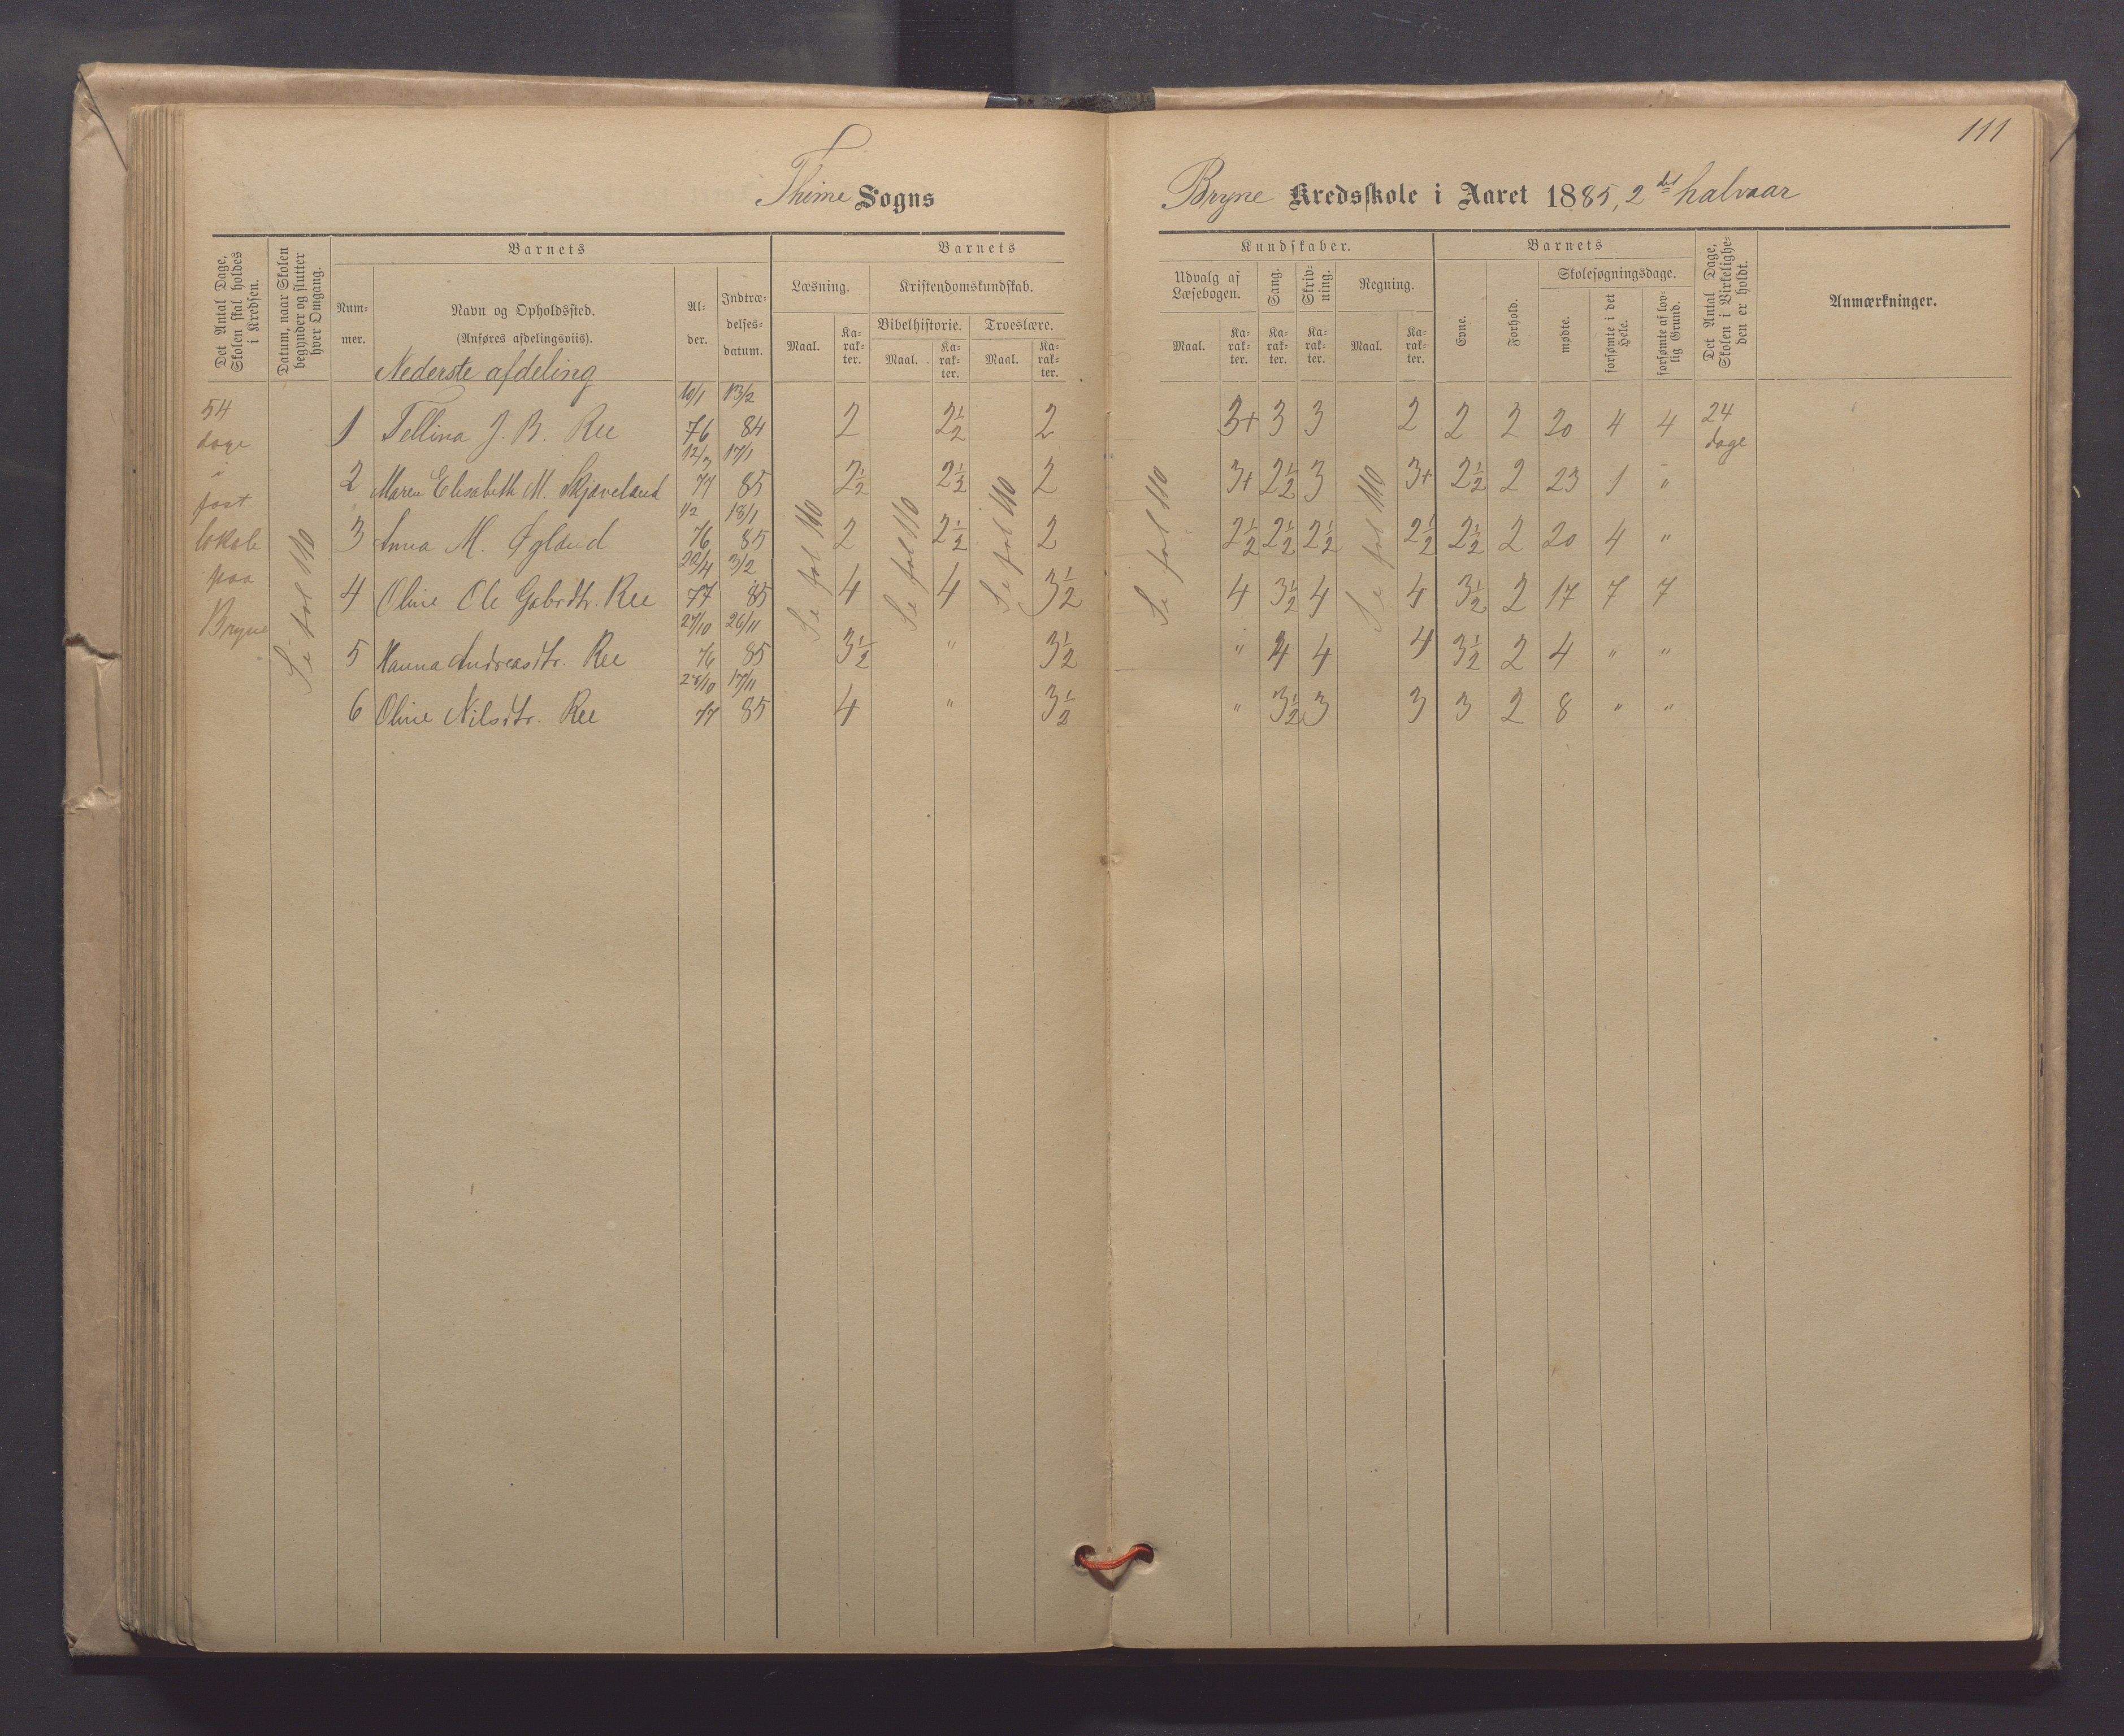 111
Thime Sogns
Bryne Kredsskole i Aaret 1885, 2det halvaar
Det Antal Dage, Skolen skal holdes i Kredsen.
Datum, naar Skolen begynder og slutter hver Omgang.
Barnets
Num-mer.
Navn og Opholdssted.
(Anføres afdelingsviis).
Al-der.
Indtræ-delses-datum.
Barnets
Læsning.
Maal. Ka-rak-ter.
Kristendomskundskab.
Bibelhistorie. Troeslære.
Maal. Ka-rak-ter. Maal. Ka-rak-ter.
Kundskaber.
Udvalg af Læsebogen.
Maal. Ka-rak-ter.
Sang. Ka-rak-ter.
Skriv-ning. Ka-rak-ter.
Regning.
Maal. Ka-rak-ter.
Barnets
Evne.
Forhold.
Skolesøgningsdage.
mødte.
forsømte i det Hele.
forsømte af lov-lig Grund.
Det Antal Dage, Skolen i Virkelighe-den er holdt.
Anmærkninger.
Nederste afdeling
54 dage i fast lokale paa Bryne
Se fol 110
Se fol 110
Se fol 110
Se fol 110
Se fol 110
Se fol 110
1 Tellina J. B. Ree 10/1 76 13/2 84 2 2½ 2 3+ 3 3 2 2 2 20 4 4 24 dage
2 Maren Elisabeth M. Skjæveland 12/3 77 17/1 85 2½ 2½ 2 3+ 2½ 3 3+ 2½ 2 23 1 "
3 Anna M. Øgland 1/2 76 18/1 85 2 2½ 2 2½ 2½ 2½ 2½ 2½ 2 20 4 "
4 Oline Ole Gabrdtr. Ree 20/4 77 3/2 85 4 4 3½ 4 3½ 4 4 3½ 2 17 7 7
5 Hanna Andreasdtr. Ree 27/10 76 26/11 85 3½ " 3½ " 4 4 4 3½ 2 4 " "
6 Oline Nilsdtr. Ree 28/10 77 17/11 85 4 " 3½ " 3½ 3 3 3 2 8 " "